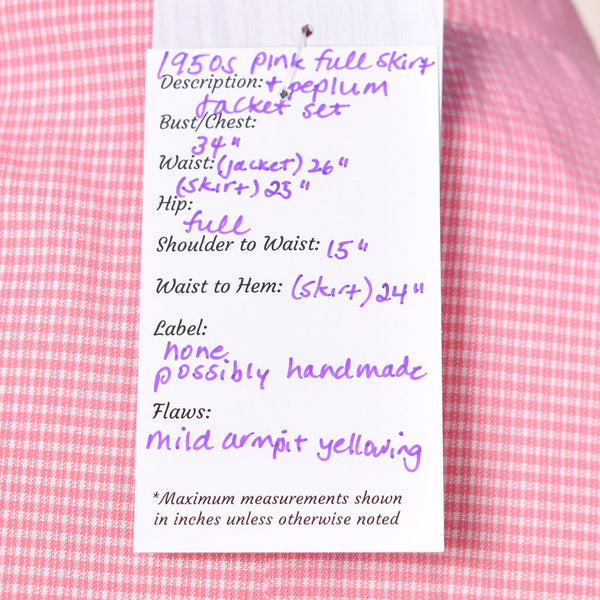 1950s pink full skirt
Description: + peplum
jacket set
Bust/Chest:
34"
Waist: (jacket) 26"
(skirt) 25"
Hip:
full
Shoulder to Waist: 15"
Waist to Hem: (skirt) 24"
Label:
none
possibly handmade
Flaws:
mild armpit yellowing
*Maximum measurements shown
in inches unless otherwise noted